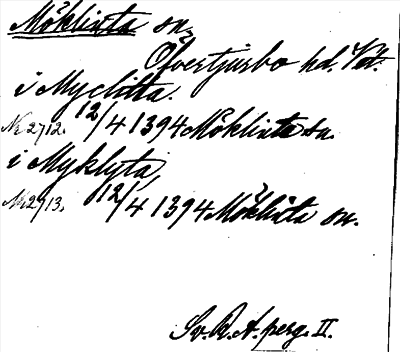 Möklinta sn,
Öfvertjurbo hd. Vstl.
i Myclita.
No 2712. 12/4 1394 Möklinta sn.
i Myklyta,
No 2713. 12/4 1394 Möklinta sn.
Sv. R. A. perg. II.